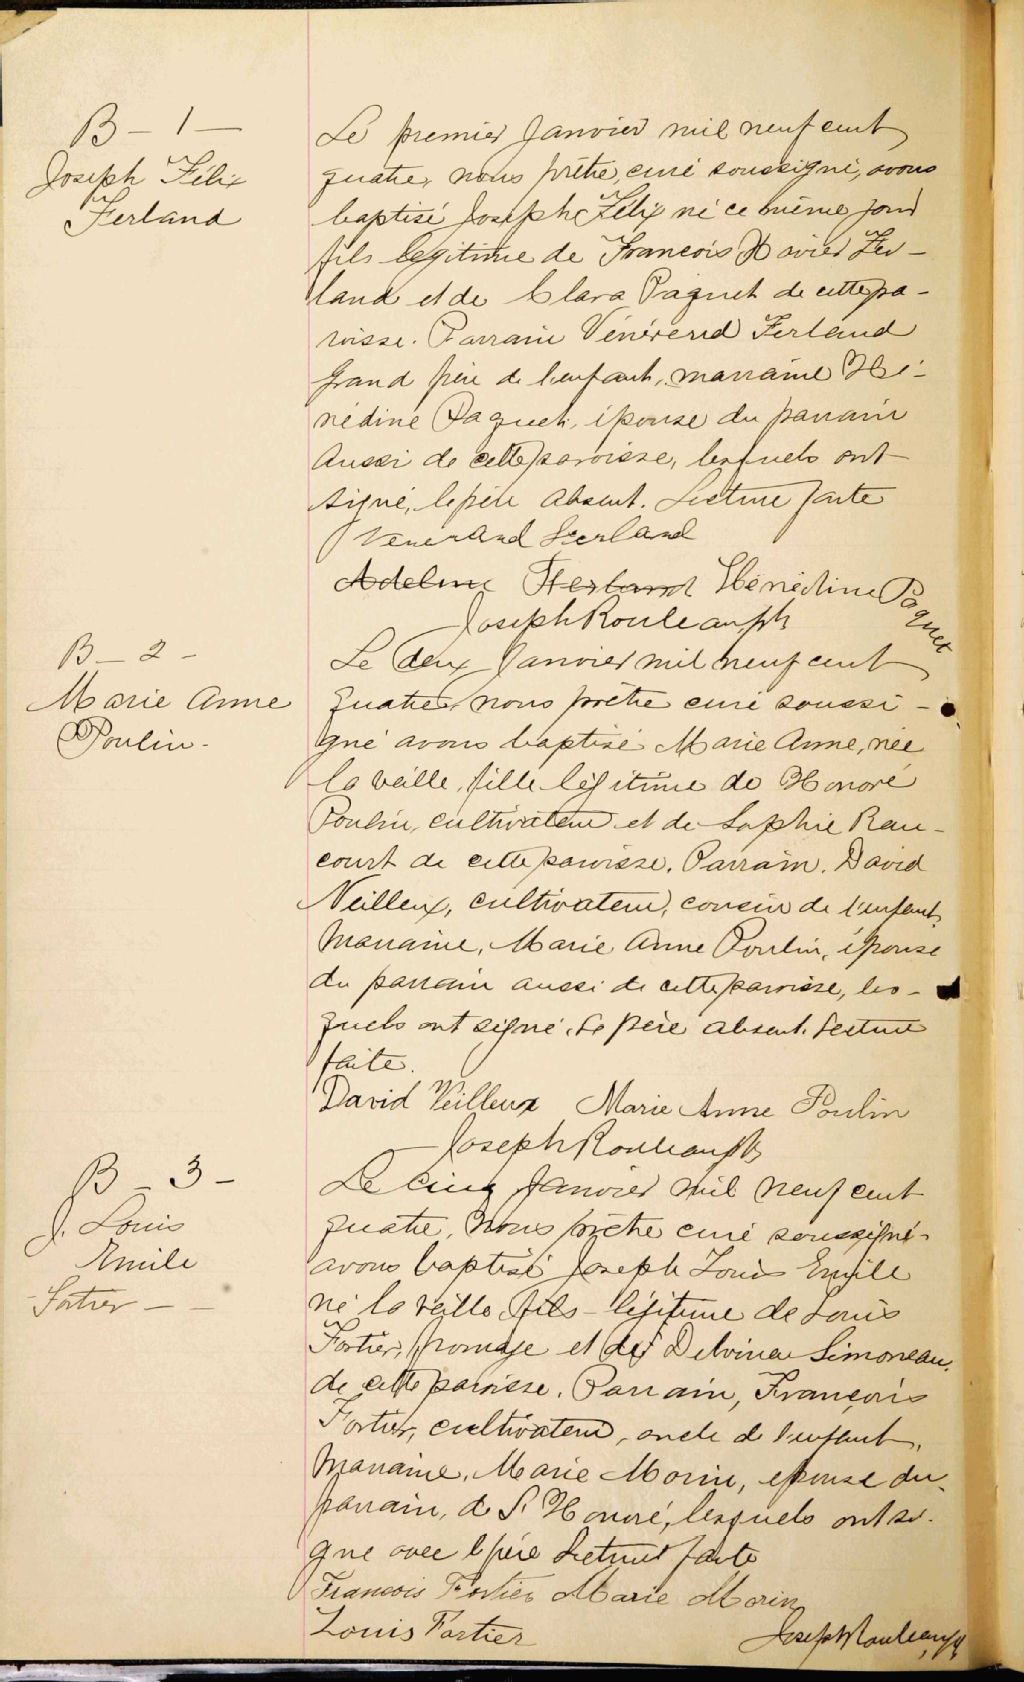 B - 1 -
Joseph Félix
Ferland
Le premier Janvier mil neuf cent
quatre, nous prêtre, curé soussigné, avons
baptisé Joseph Félix né ce même jour
fils légitime de François Xavier Fer-
land et de Clara Paquet de cette pa-
roisse. Parrain Vénérend Ferland
grand père de l'enfant, marraine Hé-
nédine Paquet, épouse du parrain
aussi de cette paroisse, lesquels ont
signé, le père absent. Lecture faite
Venerand Ferland
Adeline Ferland Hénédine Paquet
Joseph Rouleau ptr
B - 2 -
Marie Anne
Poulin -
Le deux Janvier mil neuf cent
quatre, nous prêtre curé soussi-
gné avons baptisé Marie Anne, née
la veille, fille légitime de Honoré
Poulin, cultivateur et de Sophie Ran-
court de cette paroisse. Parrain, David
Veilleux, cultivateur, cousin de l'enfant,
Marraine, Marie Anne Poulin, épouse
du parrain aussi de cette paroisse, les-
quels ont signé, le père absent. Lecture
faite.
David Veilleux Marie Anne Poulin
Joseph Rouleau ptr
B - 3 -
J. Louis
Emile
Fortier - -
Le cinq Janvier mil neuf cent
quatre, nous prêtre curé soussigné-
avons baptisé Joseph Louis Emile
né la veille, fils légitime de Louis
Fortier, fromage et de Delvina Simoneau,
de cette paroisse. Parrain, François
Fortier, cultivateur, oncle de l'enfant,
Marraine, Marie Morin, epouse du
parrain, de St Honoré, lesquels ont si-
gné avec le père Lecture faite
Francois Fortier Marie Morin
Louis Fortier
Joseph Rouleau ptr